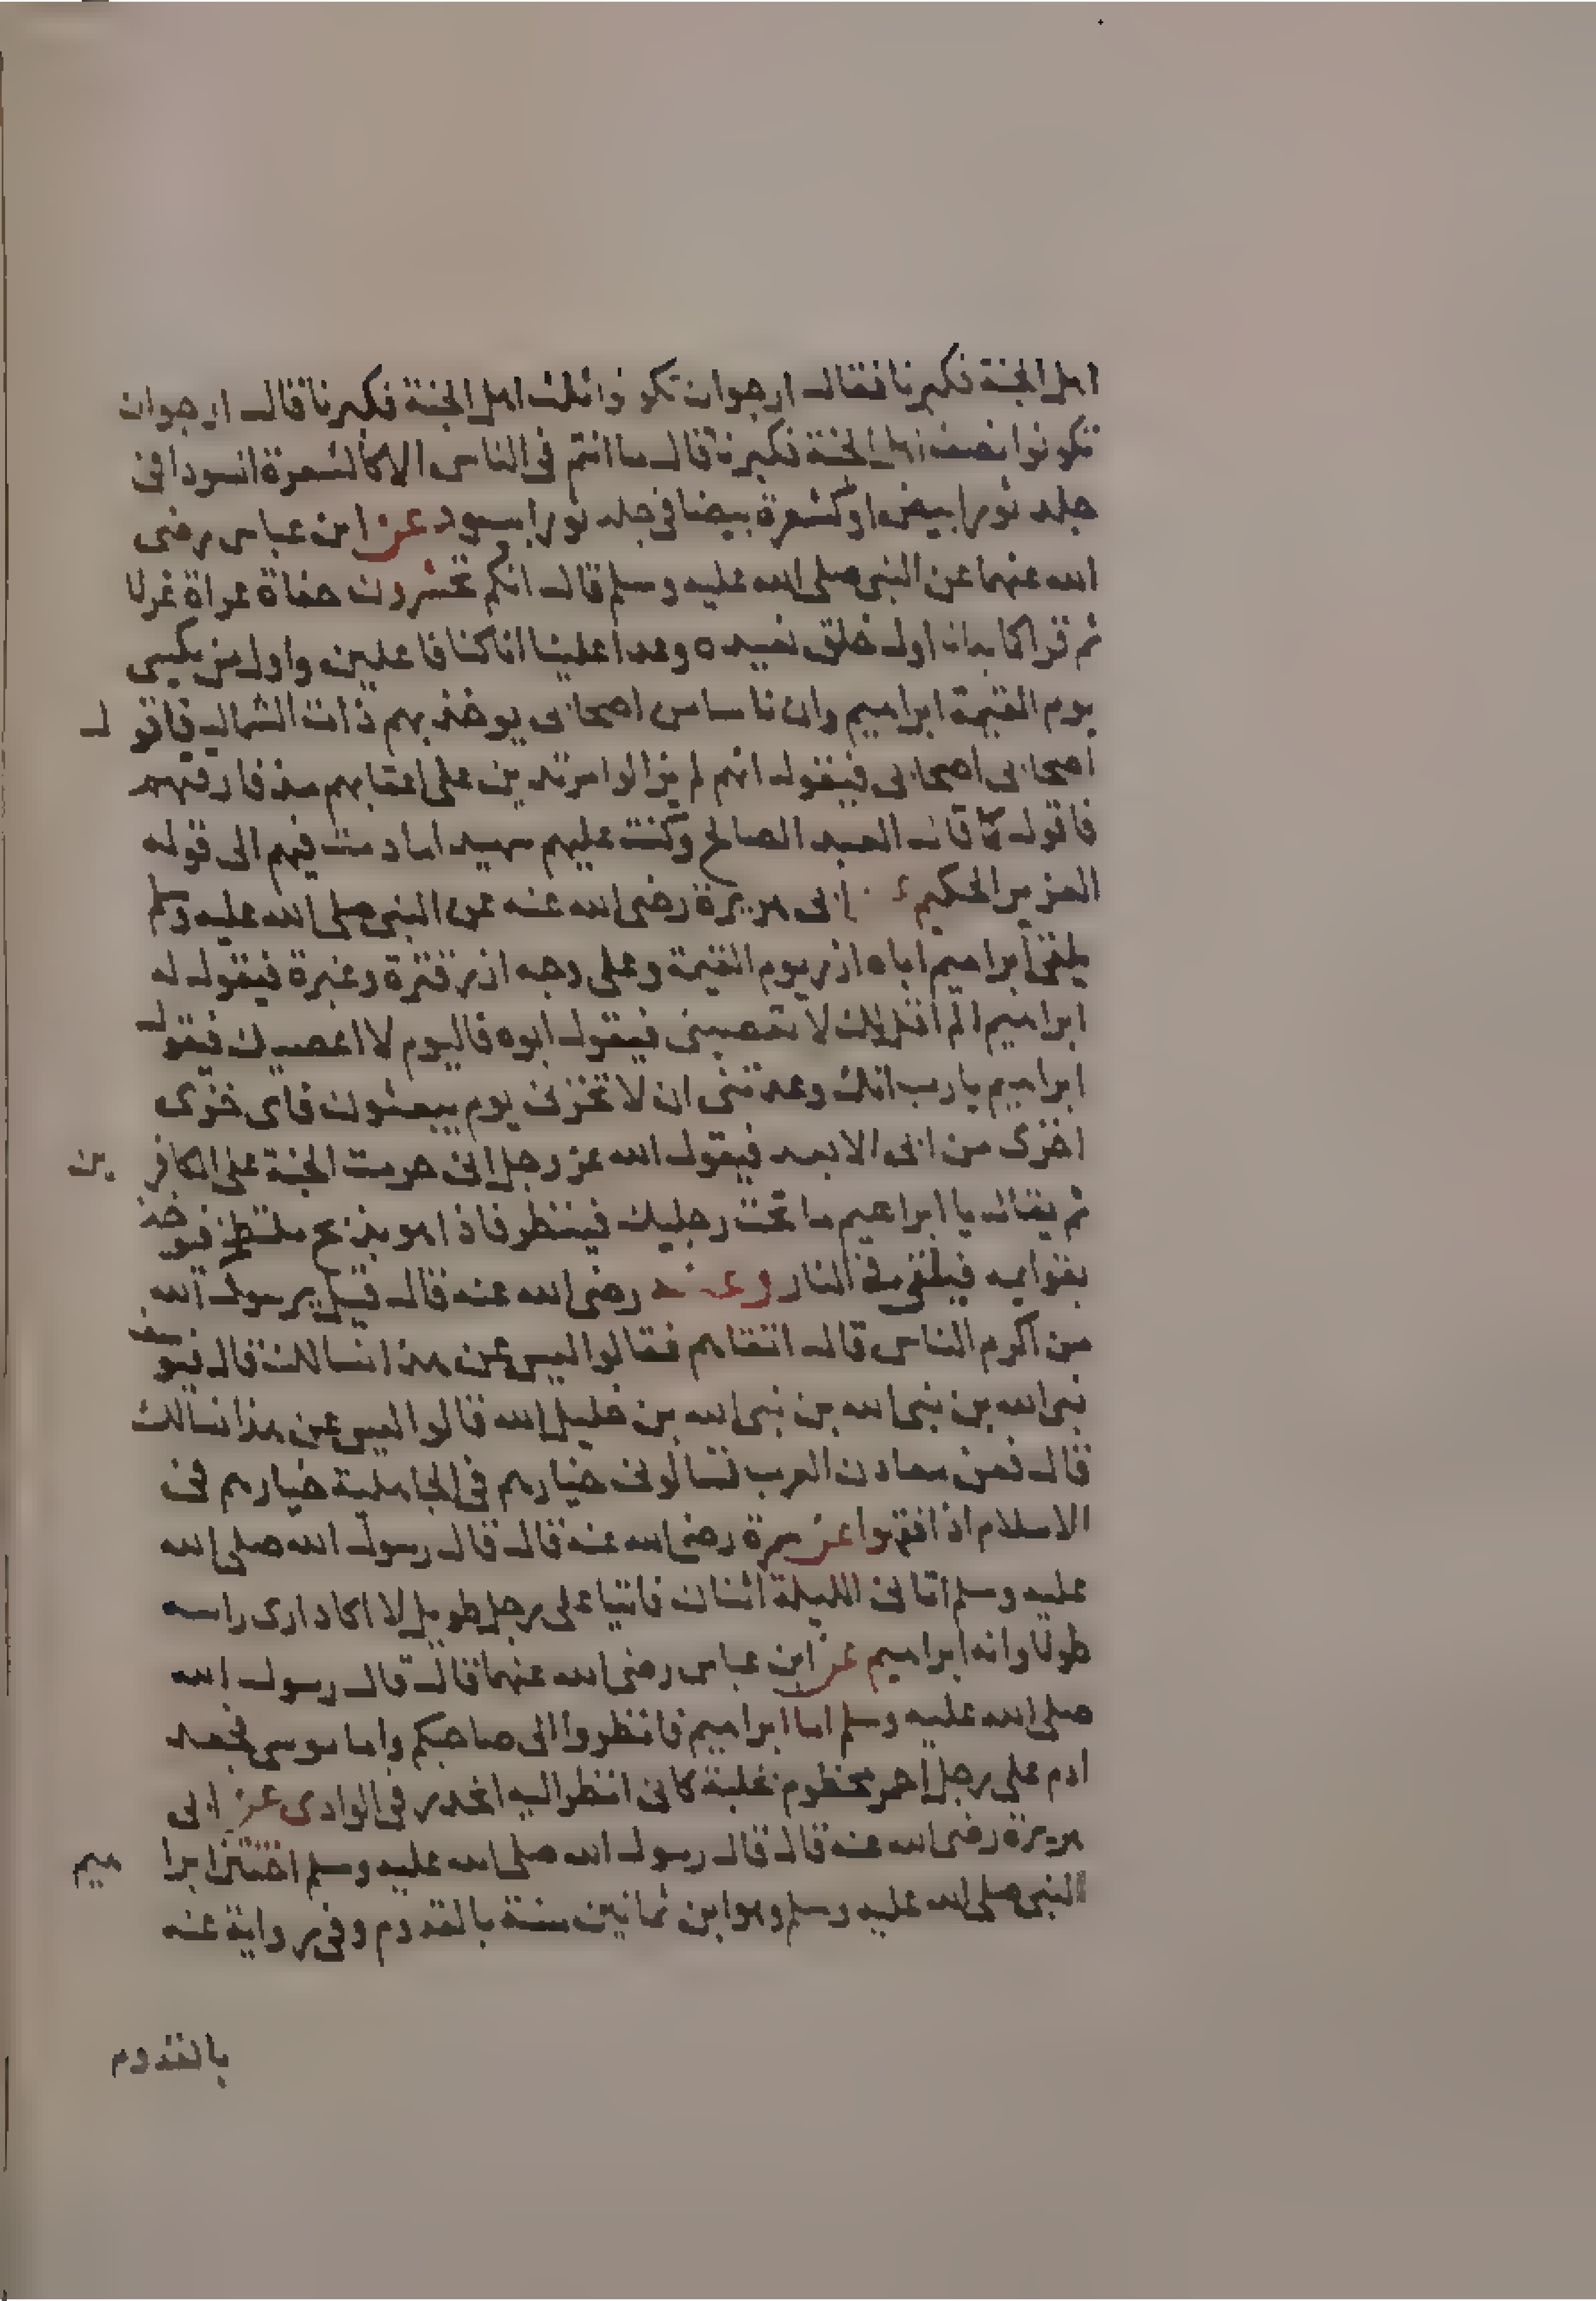 اهل الجنة فكبرنا فقال ارجوان تكونوا ثلث اهل الجنة فكبرنا قال ارجوان
تكونوا نصف اهل الجنة فكبرنا قال ما انتم فى الناس الا كالشعرة السودا فى
جلد ثور ابيض او كشعرة بيضا فى جلد ثور اسود عن ابن عباس رضى
الله عنهما عن النبى صلى الله عليه وسلم قال انكم تحشرون حفاة عراة غرلا
ثم قرا كما بدانا اول خلق نعيده وعدا علينا انا كنا فاعلين واول من يكسى
يوم القيمة ابراهيم وان ناسا من اصحابى يوخذ بهم ذات الشمال فاقول
اصحابى اصحابى فيقول انهم لم يزالوا مرتدين على اعقابهم منذ فارقتهم
فاقول كما قال العبد الصالح وكنت عليهم شهيدا ما دمت فيهم الى قوله
العزيز الحكيم ابى هريرة رضى الله عنه عن النبى صلى الله عليه وسلم
يلقى ابراهيم اباه ازر يوم القيمة وعلى وجه ازر قترة وغبرة فيقول له
ابراهيم الم اقل لك لا تعصينى فيقول ابوه فاليوم لا اعصيك فيقول
ابراهيم يارب انك وعدتنى ان لا تخزنى يوم يبعثون فاى خزى
اخزى من ابى الابعد فيقول الله عز وجل انى حرمت الجنة على الكافرين
ثم يقال يا ابراهيم ما تحت رجليك فينظر فاذا هو بذيخ ملتطخ فيوخذ
بقوايمه فيلقى فى النار وعنه رضى الله عنه قال قيل يرسول الله
من اكرم الناس قال اتقاهم فقالوا ليس عن هذا نسالك قال فيوسف
نبى الله بن نبى الله بن نبى الله بن خليل الله قالوا ليس عن هذا نسالك
قال فعن معادن العرب تسالونى خيارهم فى الجاهلية خيارهم فى
الاسلام اذا فقهوا عن سمرة رضى الله عنه قال قال رسول الله صلى الله
عليه وسلم اتانى الليلة اثنان فاتيا على رجل طويل لا اكاد ارى راسه
طولا وانه ابراهيم عن ابن عباس رضى الله عنهما قال قال رسول الله
صلى الله عليه وسلم اما ابراهيم فانظروا الى صاحبكم واما موسى فجعد
ادم على رجل احمر مخطوم بخلبة كانى انظر اليه انحدر فى الوادى عن ابى
هريرة رضى الله عنه قال قال رسول الله صلى الله عليه وسلم اختتن ابراهيم
النبى صلى الله عليه وسلم وهو ابن ثمانين سنة بالقدوم وفى رواية عنه
بالقدوم